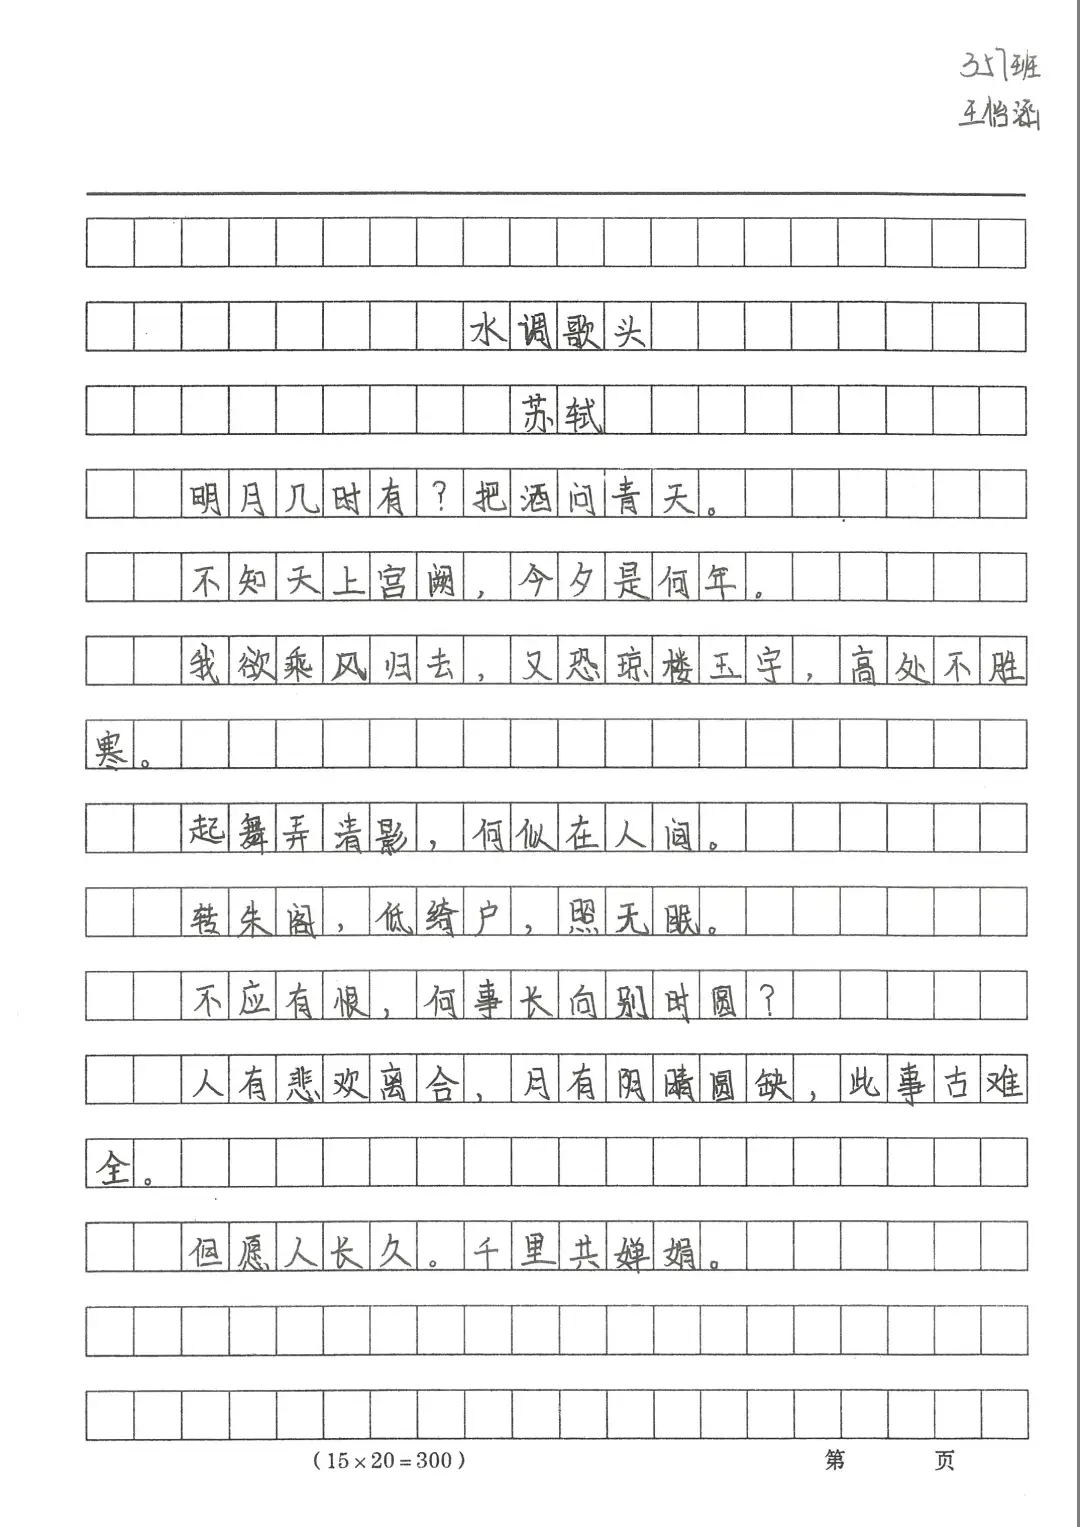 357班
王怡涵
水调歌头
苏轼
明月几时有？把酒问青天。
不知天上宫阙，今夕是何年。
我欲乘风归去，又恐琼楼玉宇，高处不胜
寒。
起舞弄清影，何似在人间。
转朱阁，低绮户，照无眠。
不应有恨，何事长向别时圆？
人有悲欢离合，月有阴晴圆缺，此事古难
全。
但愿人长久。千里共婵娟。
(15×20=300) 第 页